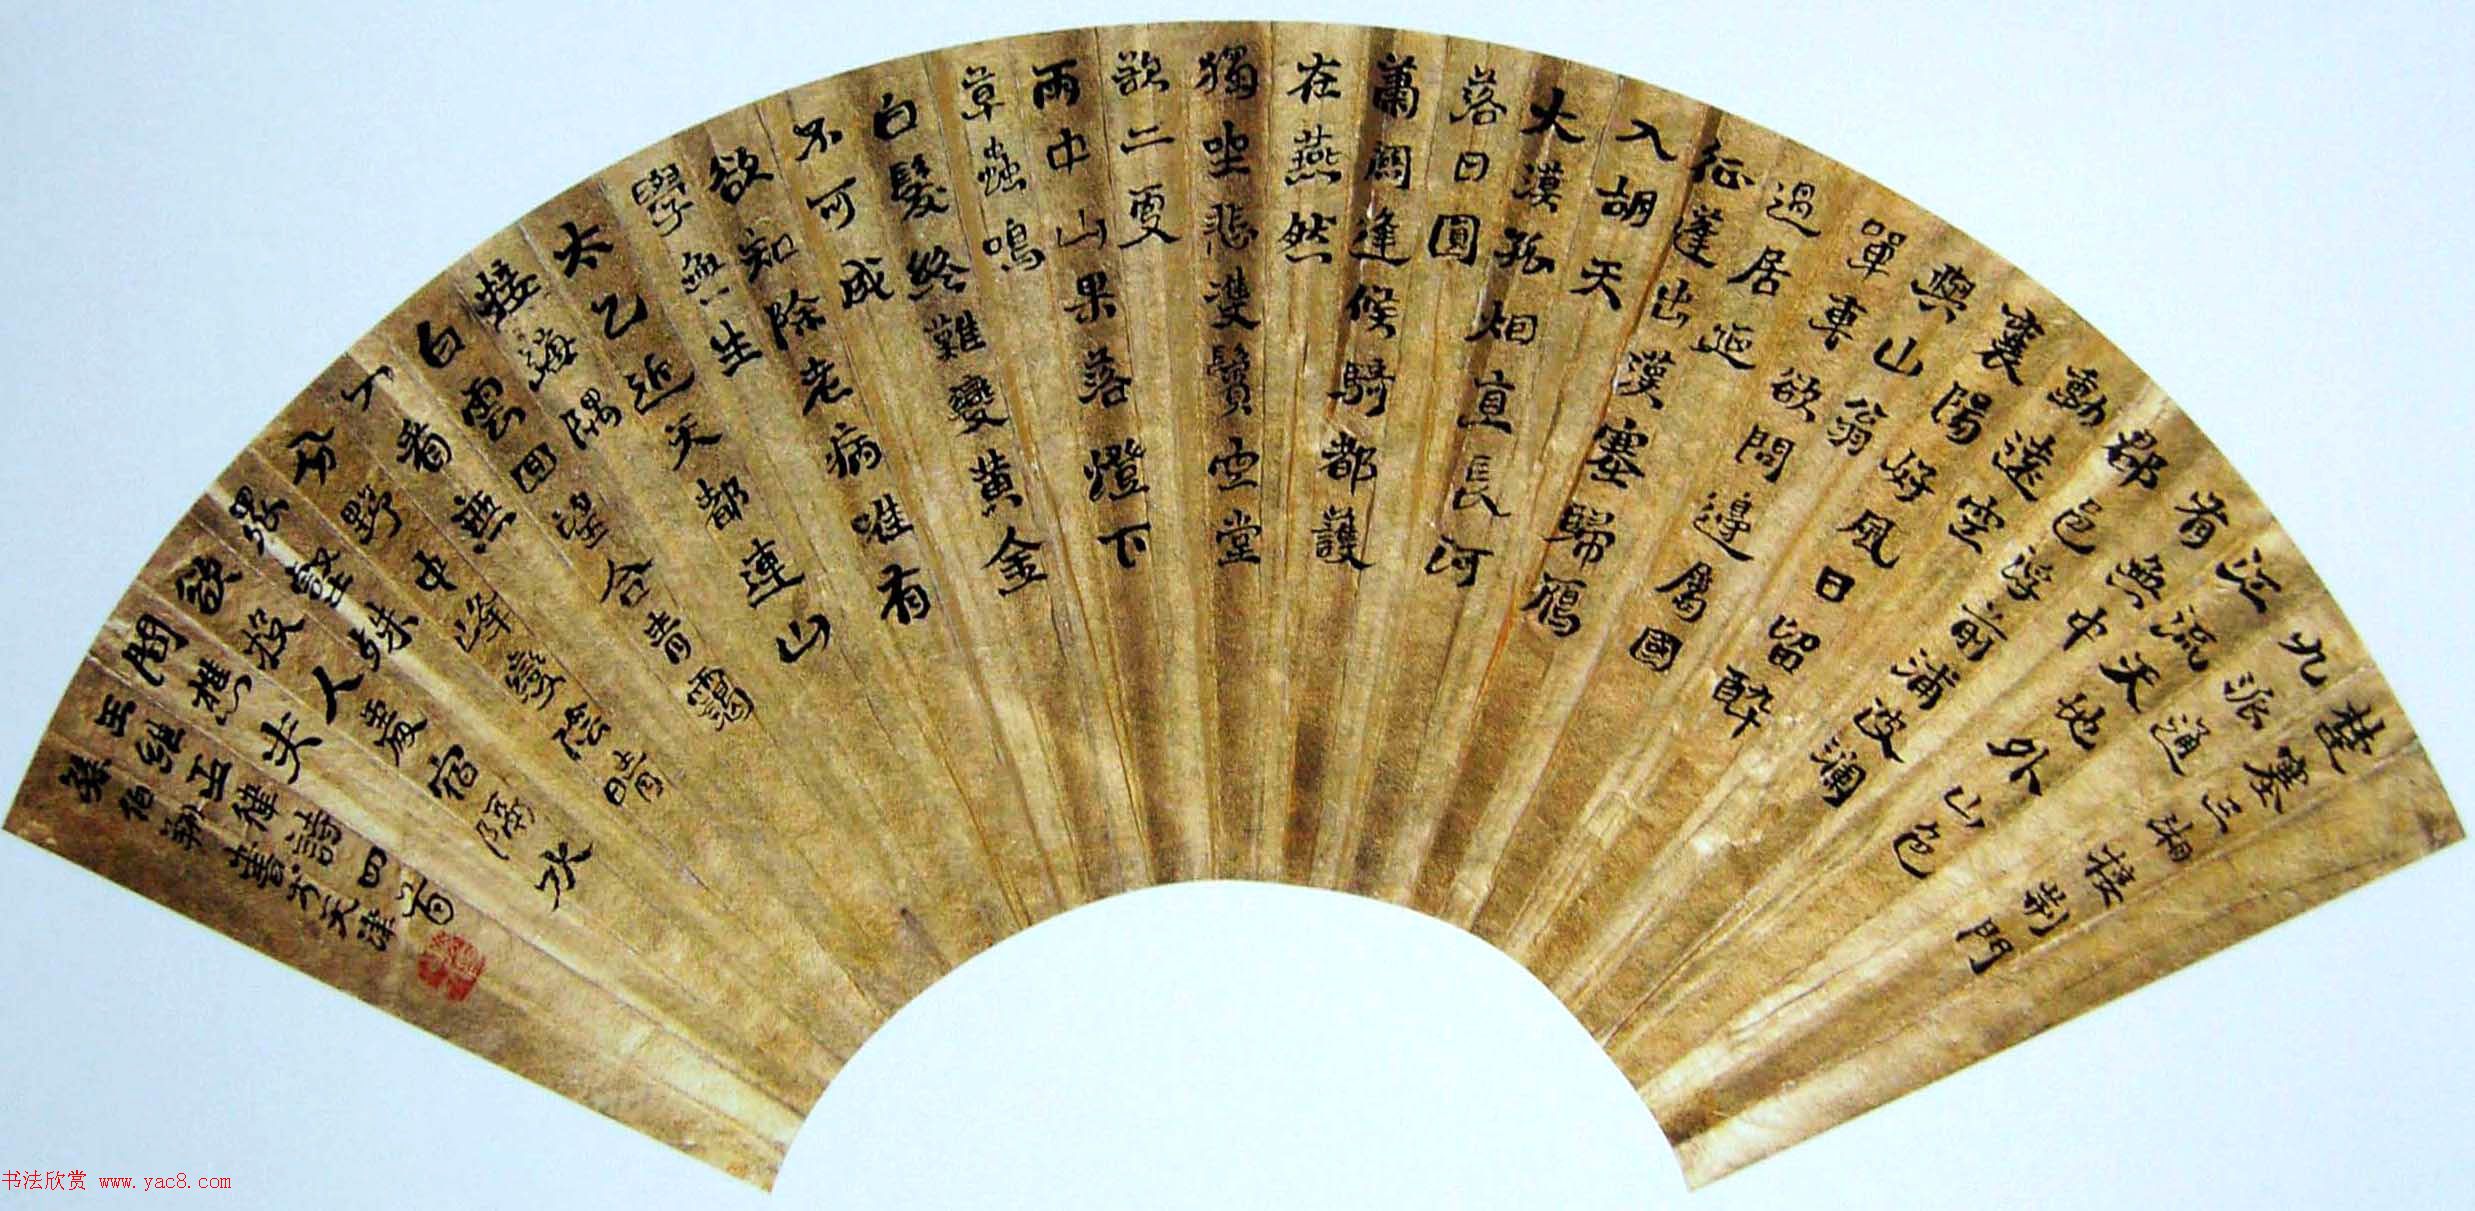 楚塞三湘接荆門
九派通
江流天地外山色
有無中
郡邑浮前浦波瀾
動遠空
襄陽好風日留醉
與山翁
單車欲問邊屬國
過居延
征蓬出漢塞歸鴈
入胡天
大漠孤烟直長河
落日圓
蕭關逢候騎都護
在燕然
獨坐悲雙鬢空堂
欲二更
雨中山果落燈下
草蟲鳴
白髮終難變黄金
不可成
欲知除老病唯有
學無生
太乙近天都連山
接海隅
白雲回望合青靄
入看無
分野中峰變陰晴
衆壑殊
欲投人處宿隔水
問樵夫
王維五律詩四首
張伯翔書於天津
书法欣赏 www.yac8.com